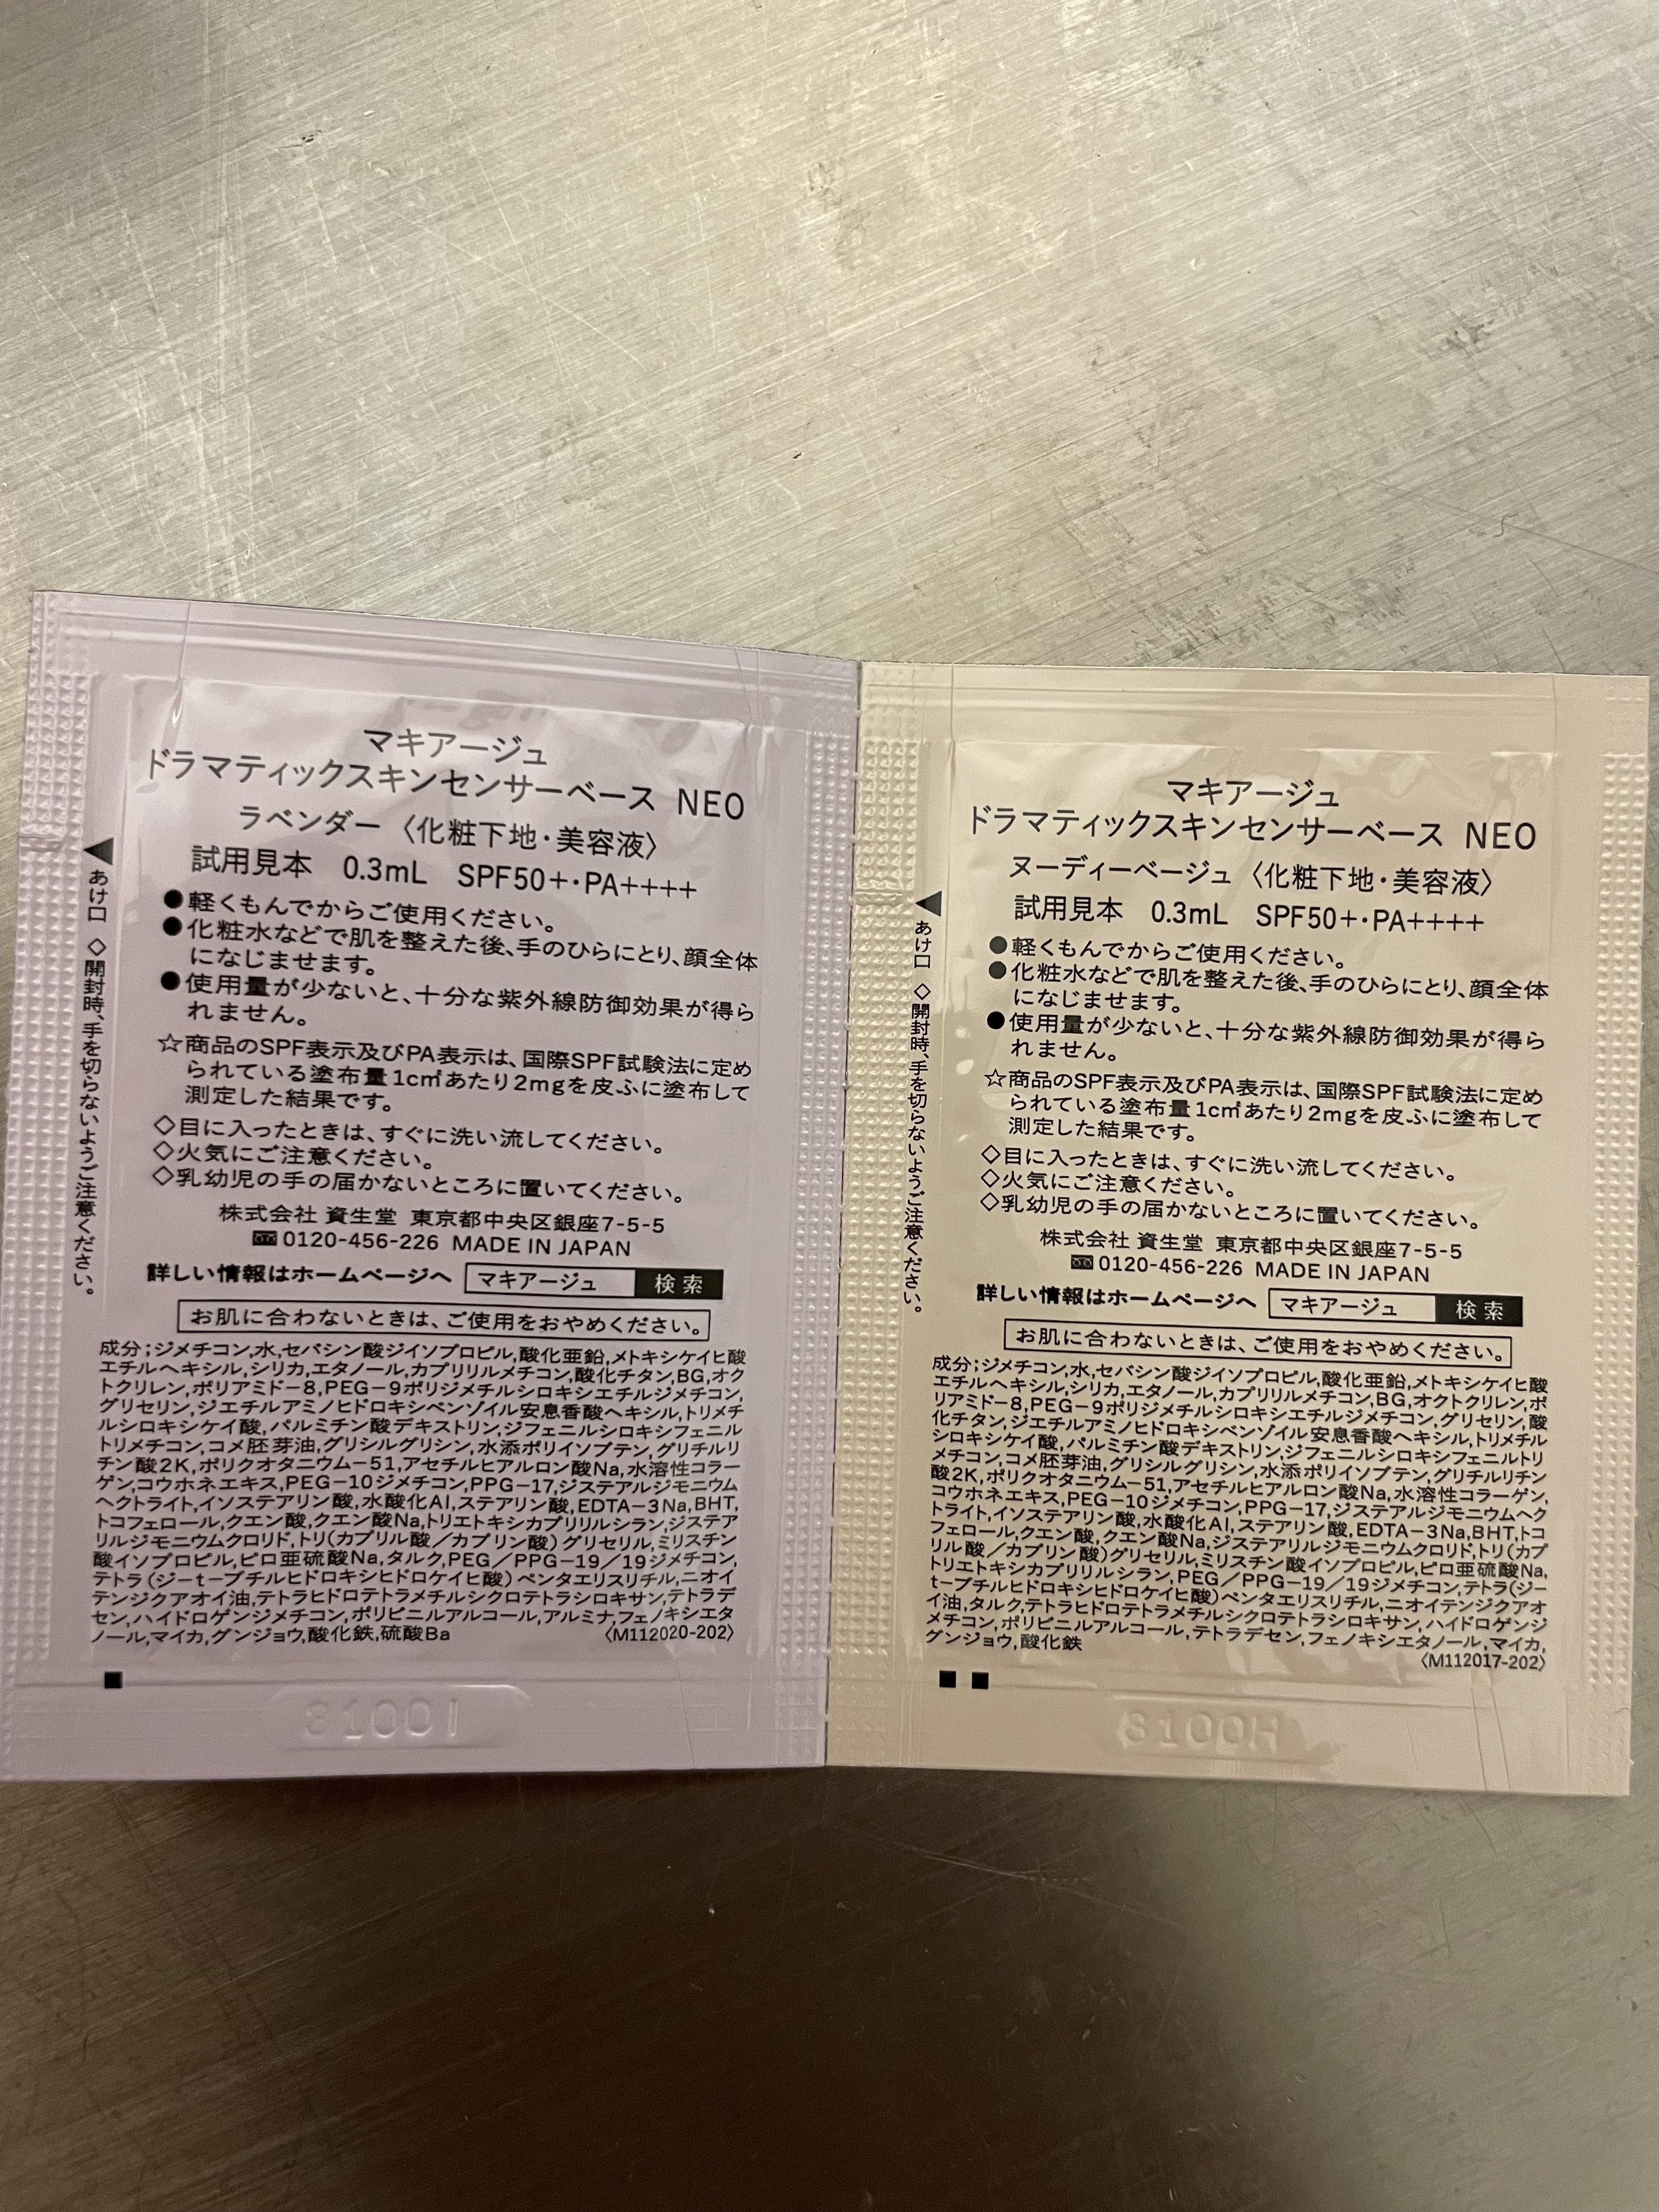 マキアージュ
ドラマティックスキンセンサーベース NEO
ラベンダー〈化粧下地・美容液〉
試用見本 0.3mL SPF50+・PA++++
●軽くもんでからご使用ください。
●化粧水などで肌を整えた後、手のひらにとり、顔全体
になじませます。
●使用量が少ないと、十分な紫外線防御効果が得ら
れません。
☆商品のSPF表示及びPA表示は、国際SPF試験法に定め
られている塗布量1c㎡あたり2mgを皮ふに塗布して
測定した結果です。
◇目に入ったときは、すぐに洗い流してください。
◇火気にご注意ください。
◇乳幼児の手の届かないところに置いてください。
株式会社 資生堂 東京都中央区銀座7-5-5
0120-456-226 MADE IN JAPAN
詳しい情報はホームページへ マキアージュ 検索
お肌に合わないときは、ご使用をおやめください。
成分;ジメチコン,水,セバシン酸ジイソプロピル,酸化亜鉛,メトキシケイヒ酸
エチルヘキシル,シリカ,エタノール,カプリリルメチコン,酸化チタン,BG,オク
トクリレン,ポリアミド-8,PEG-9ポリジメチルシロキシエチルジメチコン,
グリセリン,ジエチルアミノヒドロキシベンゾイル安息香酸ヘキシル,トリメチ
ルシロキシケイ酸,パルミチン酸デキストリン,ジフェニルシロキシフェニル
トリメチコン,コメ胚芽油,グリシルグリシン,水添ポリイソブテン,グリチルリ
チン酸2K,ポリクオタニウム-51,アセチルヒアルロン酸Na,水溶性コラー
ゲン,コウホネエキス,PEG-10ジメチコン,PPG-17,ジステアルジモニウム
ヘクトライト,イソステアリン酸,水酸化Al,ステアリン酸,EDTA-3Na,BHT,
トコフェロール,クエン酸,クエン酸Na,トリエトキシカプリリルシラン,ジステア
リルジモニウムクロリド,トリ(カプリル酸/カプリン酸)グリセリル,ミリスチン
酸イソプロピル,ピロ亜硫酸Na,タルク,PEG/PPG-19/19ジメチコン,
テトラ(ジ-t-ブチルヒドロキシヒドロケイヒ酸)ペンタエリスリチル,ニオイ
テンジクアオイ油,テトラヒドロテトラメチルシクロテトラシロキサン,テトラデ
セン,ハイドロゲンジメチコン,ポリビニルアルコール,アルミナ,フェノキシエタ
ノール,マイカ,グンジョウ,酸化鉄,硫酸Ba 〈M112020-202〉
◀あけ口 ◇開封時、手を切らないようご注意ください。
3100I
マキアージュ
ドラマティックスキンセンサーベース NEO
ヌーディーベージュ〈化粧下地・美容液〉
試用見本 0.3mL SPF50+・PA++++
●軽くもんでからご使用ください。
●化粧水などで肌を整えた後、手のひらにとり、顔全体
になじませます。
●使用量が少ないと、十分な紫外線防御効果が得ら
れません。
☆商品のSPF表示及びPA表示は、国際SPF試験法に定め
られている塗布量1c㎡あたり2mgを皮ふに塗布して
測定した結果です。
◇目に入ったときは、すぐに洗い流してください。
◇火気にご注意ください。
◇乳幼児の手の届かないところに置いてください。
株式会社 資生堂 東京都中央区銀座7-5-5
0120-456-226 MADE IN JAPAN
詳しい情報はホームページへ マキアージュ 検索
お肌に合わないときは、ご使用をおやめください。
成分;ジメチコン,水,セバシン酸ジイソプロピル,酸化亜鉛,メトキシケイヒ酸
エチルヘキシル,シリカ,エタノール,カプリリルメチコン,BG,オクトクリレン,ポ
リアミド-8,PEG-9ポリジメチルシロキシエチルジメチコン,グリセリン,酸
化チタン,ジエチルアミノヒドロキシベンゾイル安息香酸ヘキシル,トリメチル
シロキシケイ酸,パルミチン酸デキストリン,ジフェニルシロキシフェニルトリ
メチコン,コメ胚芽油,グリシルグリシン,水添ポリイソブテン,グリチルリチン
酸2K,ポリクオタニウム-51,アセチルヒアルロン酸Na,水溶性コラーゲン,
コウホネエキス,PEG-10ジメチコン,PPG-17,ジステアルジモニウムヘク
トライト,イソステアリン酸,水酸化Al,ステアリン酸,EDTA-3Na,BHT,トコ
フェロール,クエン酸,クエン酸Na,ジステアリルジモニウムクロリド,トリ(カプ
リル酸/カプリン酸)グリセリル,ミリスチン酸イソプロピル,ピロ亜硫酸Na,
トリエトキシカプリリルシラン,PEG/PPG-19/19ジメチコン,テトラ(ジ-
t-ブチルヒドロキシヒドロケイヒ酸)ペンタエリスリチル,ニオイテンジクアオ
イ油,タルク,テトラヒドロテトラメチルシクロテトラシロキサン,ハイドロゲンジ
メチコン,ポリビニルアルコール,テトラデセン,フェノキシエタノール,マイカ,
グンジョウ,酸化鉄
〈M112017-202〉
◀あけ口 ◇開封時、手を切らないようご注意ください。
3100H